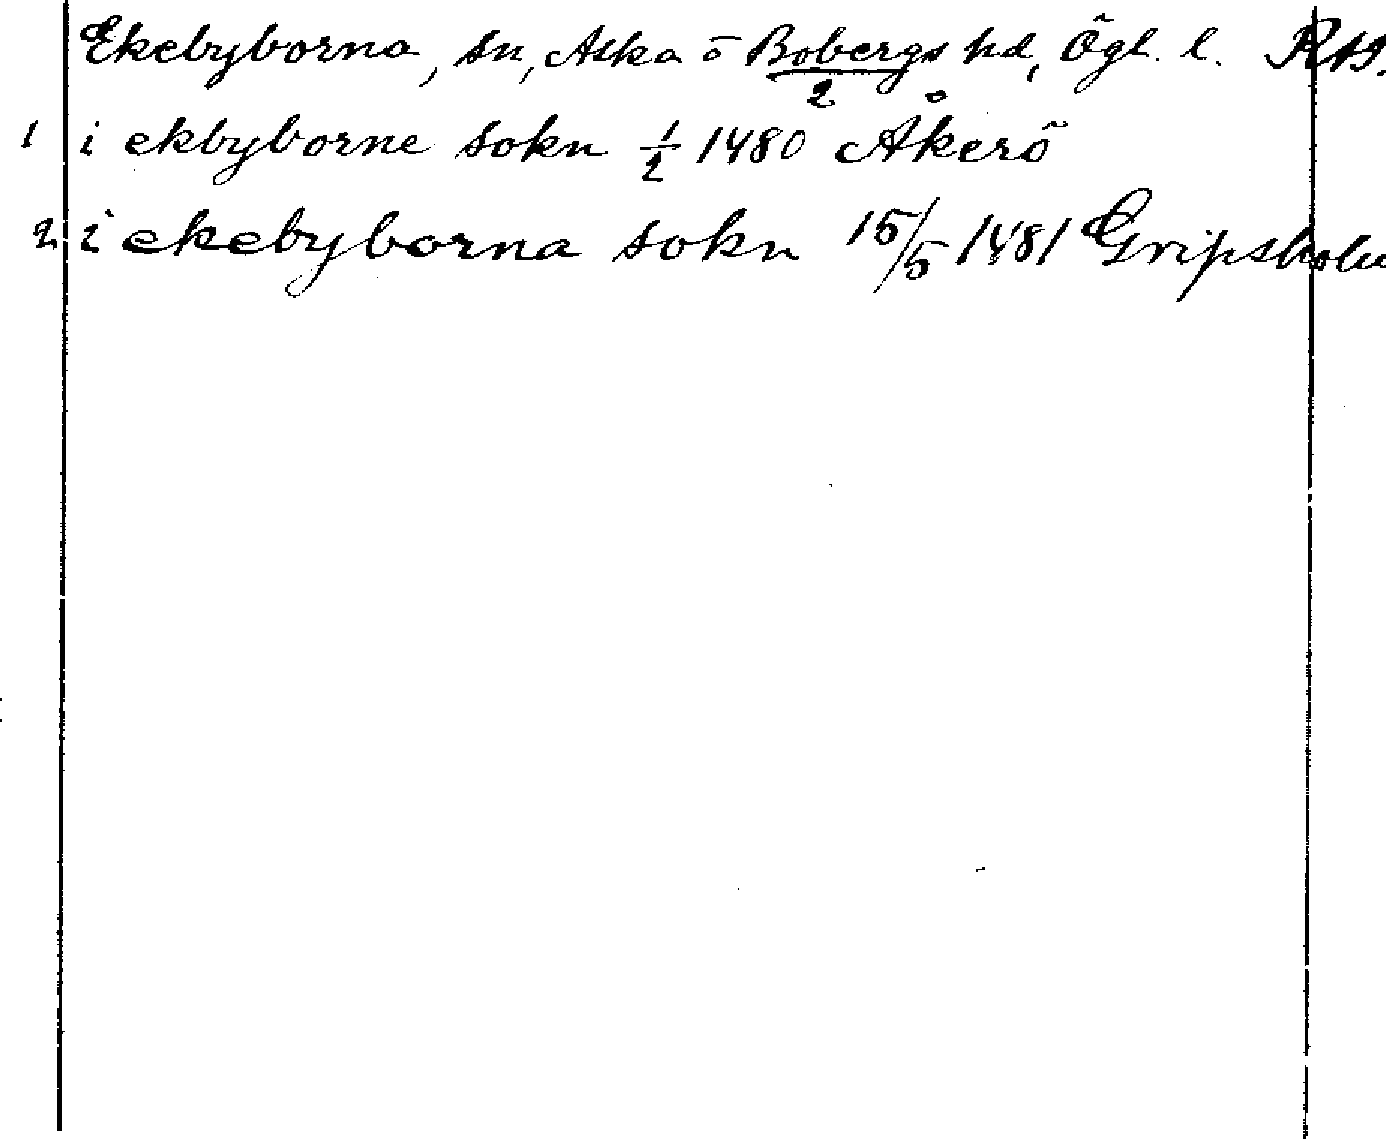 Ekebyborna, sn, Aska o Bobergs hd, Ögl. l. RA.
2
1 i ekbyborne sokn 1/2 1480 Åkerö
2 i ekebyborna sokn 15/5 1481 Gripsholm